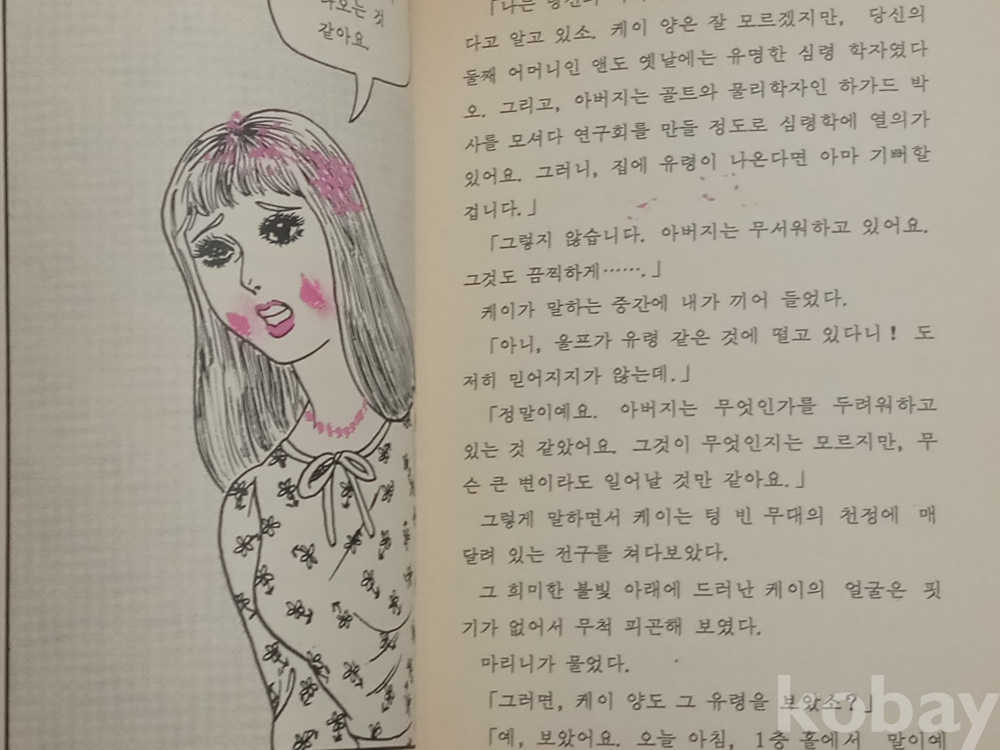 나오는 것
같아요.
「나는 당신의
다고 알고 있소. 케이 양은 잘 모르겠지만, 당신의
둘째 어머니인 앤도 옛날에는 유명한 심령 학자였다
오. 그리고, 아버지는 골트와 물리학자인 하가드 박
사를 모셔다 연구회를 만들 정도로 심령학에 열의가
있어요. 그러니, 집에 유령이 나온다면 아마 기뻐할
겁니다.」
「그렇지 않습니다. 아버지는 무서워하고 있어요.
그것도 끔찍하게…….」
케이가 말하는 중간에 내가 끼어 들었다.
「아니, 울프가 유령 같은 것에 떨고 있다니! 도
저히 믿어지지가 않는데.」
「정말이예요. 아버지는 무엇인가를 두려워하고
있는 것 같았어요. 그것이 무엇인지는 모르지만, 무
슨 큰 변이라도 일어날 것만 같아요.」
그렇게 말하면서 케이는 텅 빈 무대의 천정에 매
달려 있는 전구를 쳐다보았다.
그 희미한 불빛 아래에 드러난 케이의 얼굴은 핏
기가 없어서 무척 피곤해 보였다.
마리니가 물었다.
「그러면, 케이 양도 그 유령을 보았소?」
「예, 보았어요. 오늘 아침, 1층 홀에서 말이예
kobay